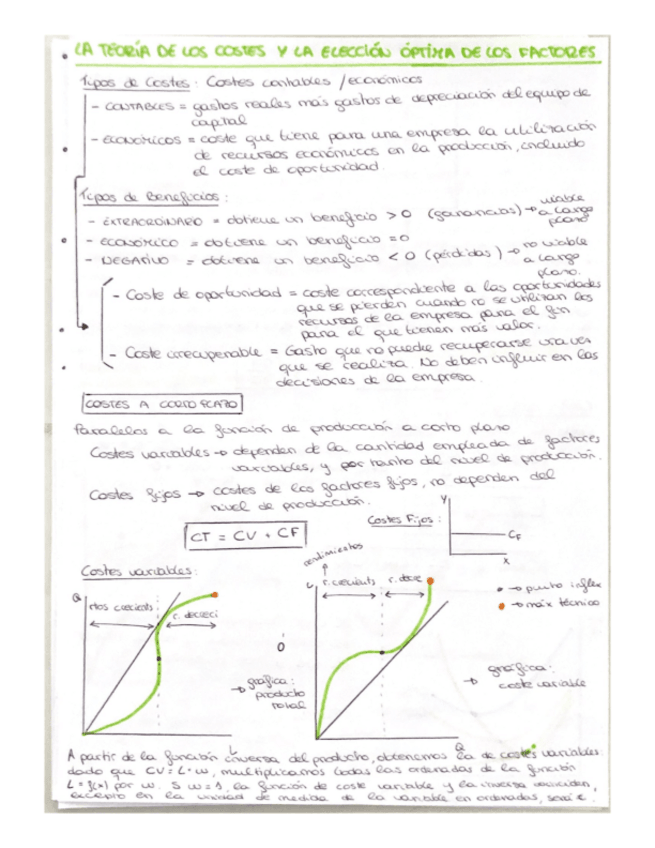 LA TEORÍA DE LOS COSTES Y LA ELECCIÓN ÓPTIMA DE LOS FACTORES
Tipos de Costes: Costes contables / económicos
- CONTABLES = gastos reales más gastos de depreciación del equipo de
capital
- ECONÓMICOS = coste que tiene para una empresa la utilización
de recursos económicos en la producción, incluido
el coste de oportunidad.
Tipos de Beneficios:
- EXTRAORDINARIO = obtiene un beneficio > 0 (ganancias) → viable
a largo
plazo
- ECONÓMICO = obtiene un beneficio = 0
- NEGATIVO = obtiene un beneficio < 0 (pérdidas) → no viable
a largo
plazo.
- Coste de oportunidad = coste correspondiente a las oportunidades
que se pierden cuando no se utilizan los
recursos de la empresa para el fin
para el que tienen más valor.
- Coste irrecuperable = Gasto que no puede recuperarse una vez
que se realiza. No deben influir en las
decisiones de la empresa.
COSTES A CORTO PLAZO
Paralelos a la función de producción a corto plazo
Costes variables → dependen de la cantidad empleada de factores
variables, y por tanto del nivel de producción.
Costes fijos → costes de los factores fijos, no dependen del
nivel de producción.
CT = CV + CF
Costes Fijos:
Y
CF
X
Costes variables:
rendimientos
Q
rtos crecients
r. decreci
L
→ gráfica:
producto
total
ó
L
r. crecients
r. decre
Q
• → punto inflex
• → máx técnico
→ gráfica:
coste variable
A partir de la función inversa del producto, obtenemos la de costes variables:
dado que CV = L · w, multiplicamos todas las ordenadas de la función
L = f(x) por w. Si w = 1, la función de coste variable y la inversa coinciden,
excepto en la unidad de medida de la variable en ordenadas, será €.